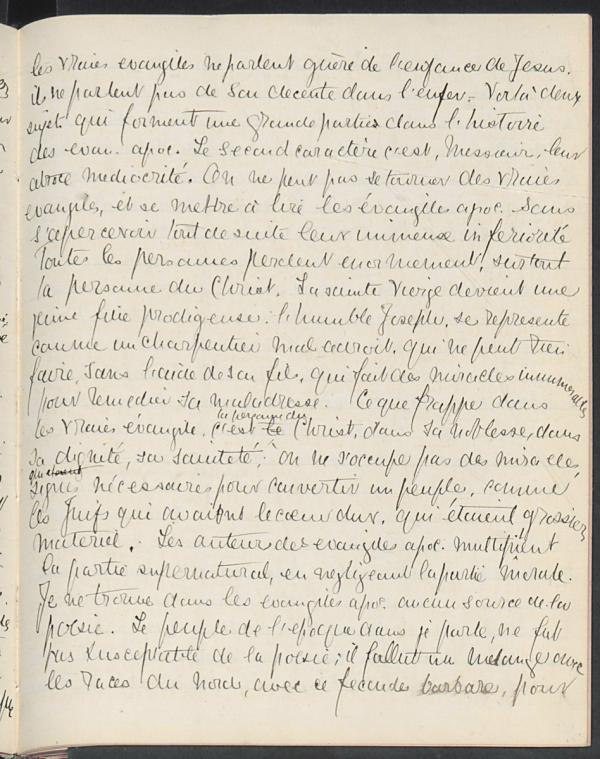 les vraies evangiles ne parlent guère de l'enfance de Jesus.
ils ne parlent pas de son decente dans l'enfer. Voila deux
sujets qui forment une grande partie dans l'histoire
des evan. apoc. Le second caractère c'est, Messieurs, leur
abote mediocrité. On ne peut pas se tourner des vraies
evangiles, et se mettre à lire les évangiles apoc. sans
s'apercevoir tout de suite leur immense inferiorité
Toutes les personnes perdent enormement, surtout
la personne du Christ. La sainte Vierge devient une
jeune fille prodigeuse: l'humble Joseph, se represente
comme un charpentier maladroit, qui ne peut rien
faire, sans l'aide de son fils, qui fait des miracles innumerables
pour remedier sa maladresse. Ce que frappe dans
les vraies évangile, c'est la personne du Christ, dans sa noblesse, dans
sa dignité, sa sainteté; on ne s'occupe pas des miracles,
signes nécessaires pour convertir un peuple, comme
les Juifs qui avaient le cœur dur, qui étaient grossiers
materiel. Les auteurs des evangiles apoc. multiplient
la partie supernatural, en negligeant la partie morale.
Je ne trouve dans les evangiles apoc. aucun source de la
poésie. Le peuple de l'epoque dans je parle, ne fut
pas susceptible de la poésie; il fallut un melange avec
les races du Nord, avec ce feconde barbare, pour